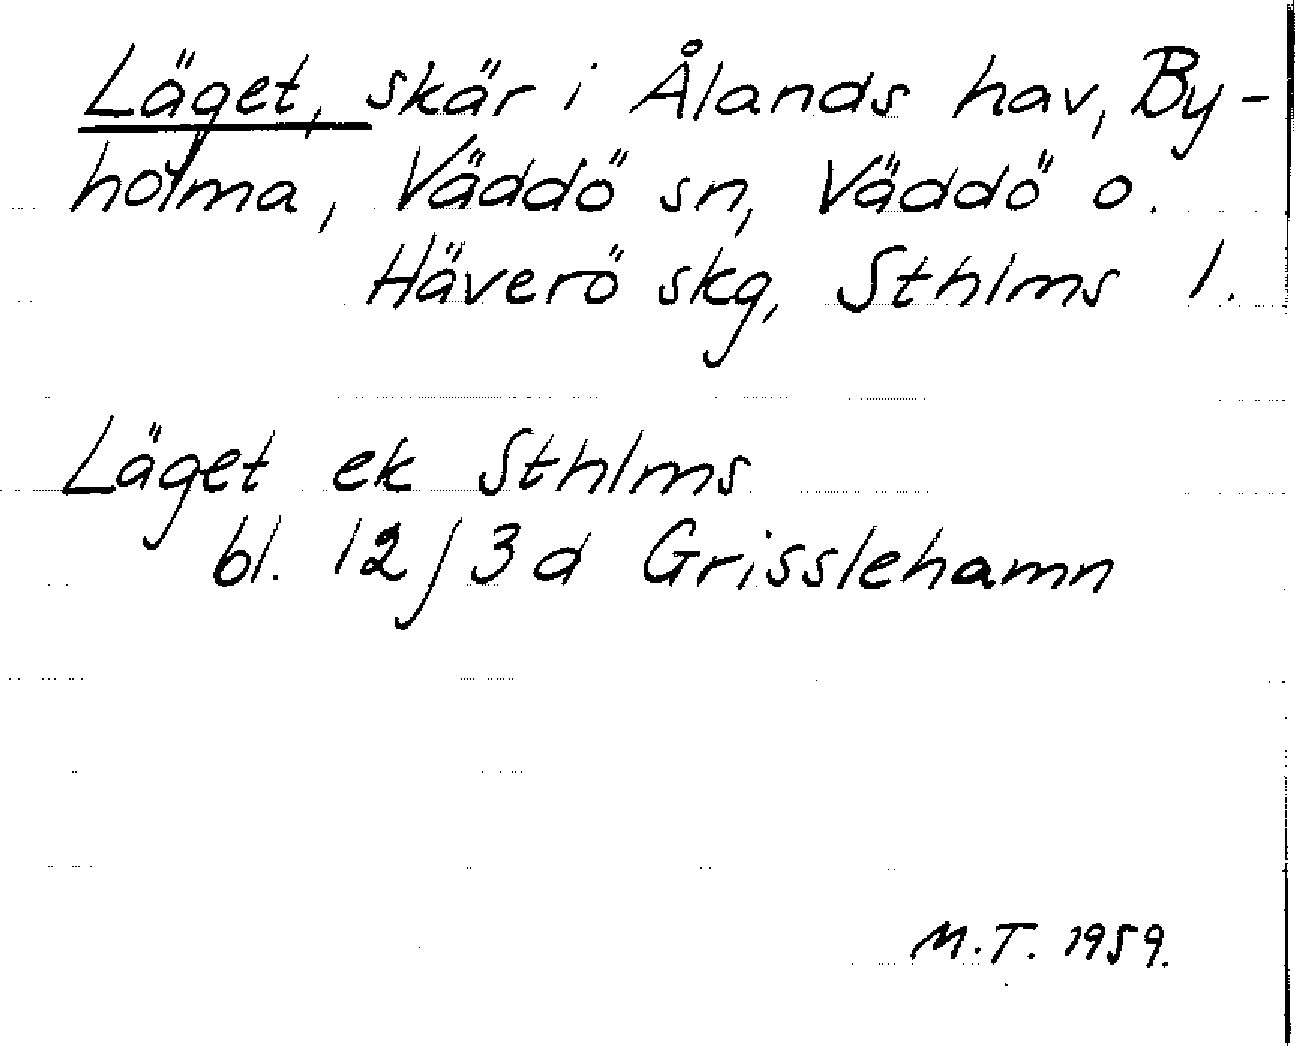 Läget, skär i Ålands hav, By-
holma, Väddö sn, Väddö o.
Häverö skg, Sthlms l.
Läget ek Sthlms
bl. 12j 3d Grisslehamn
M.T. 1959.